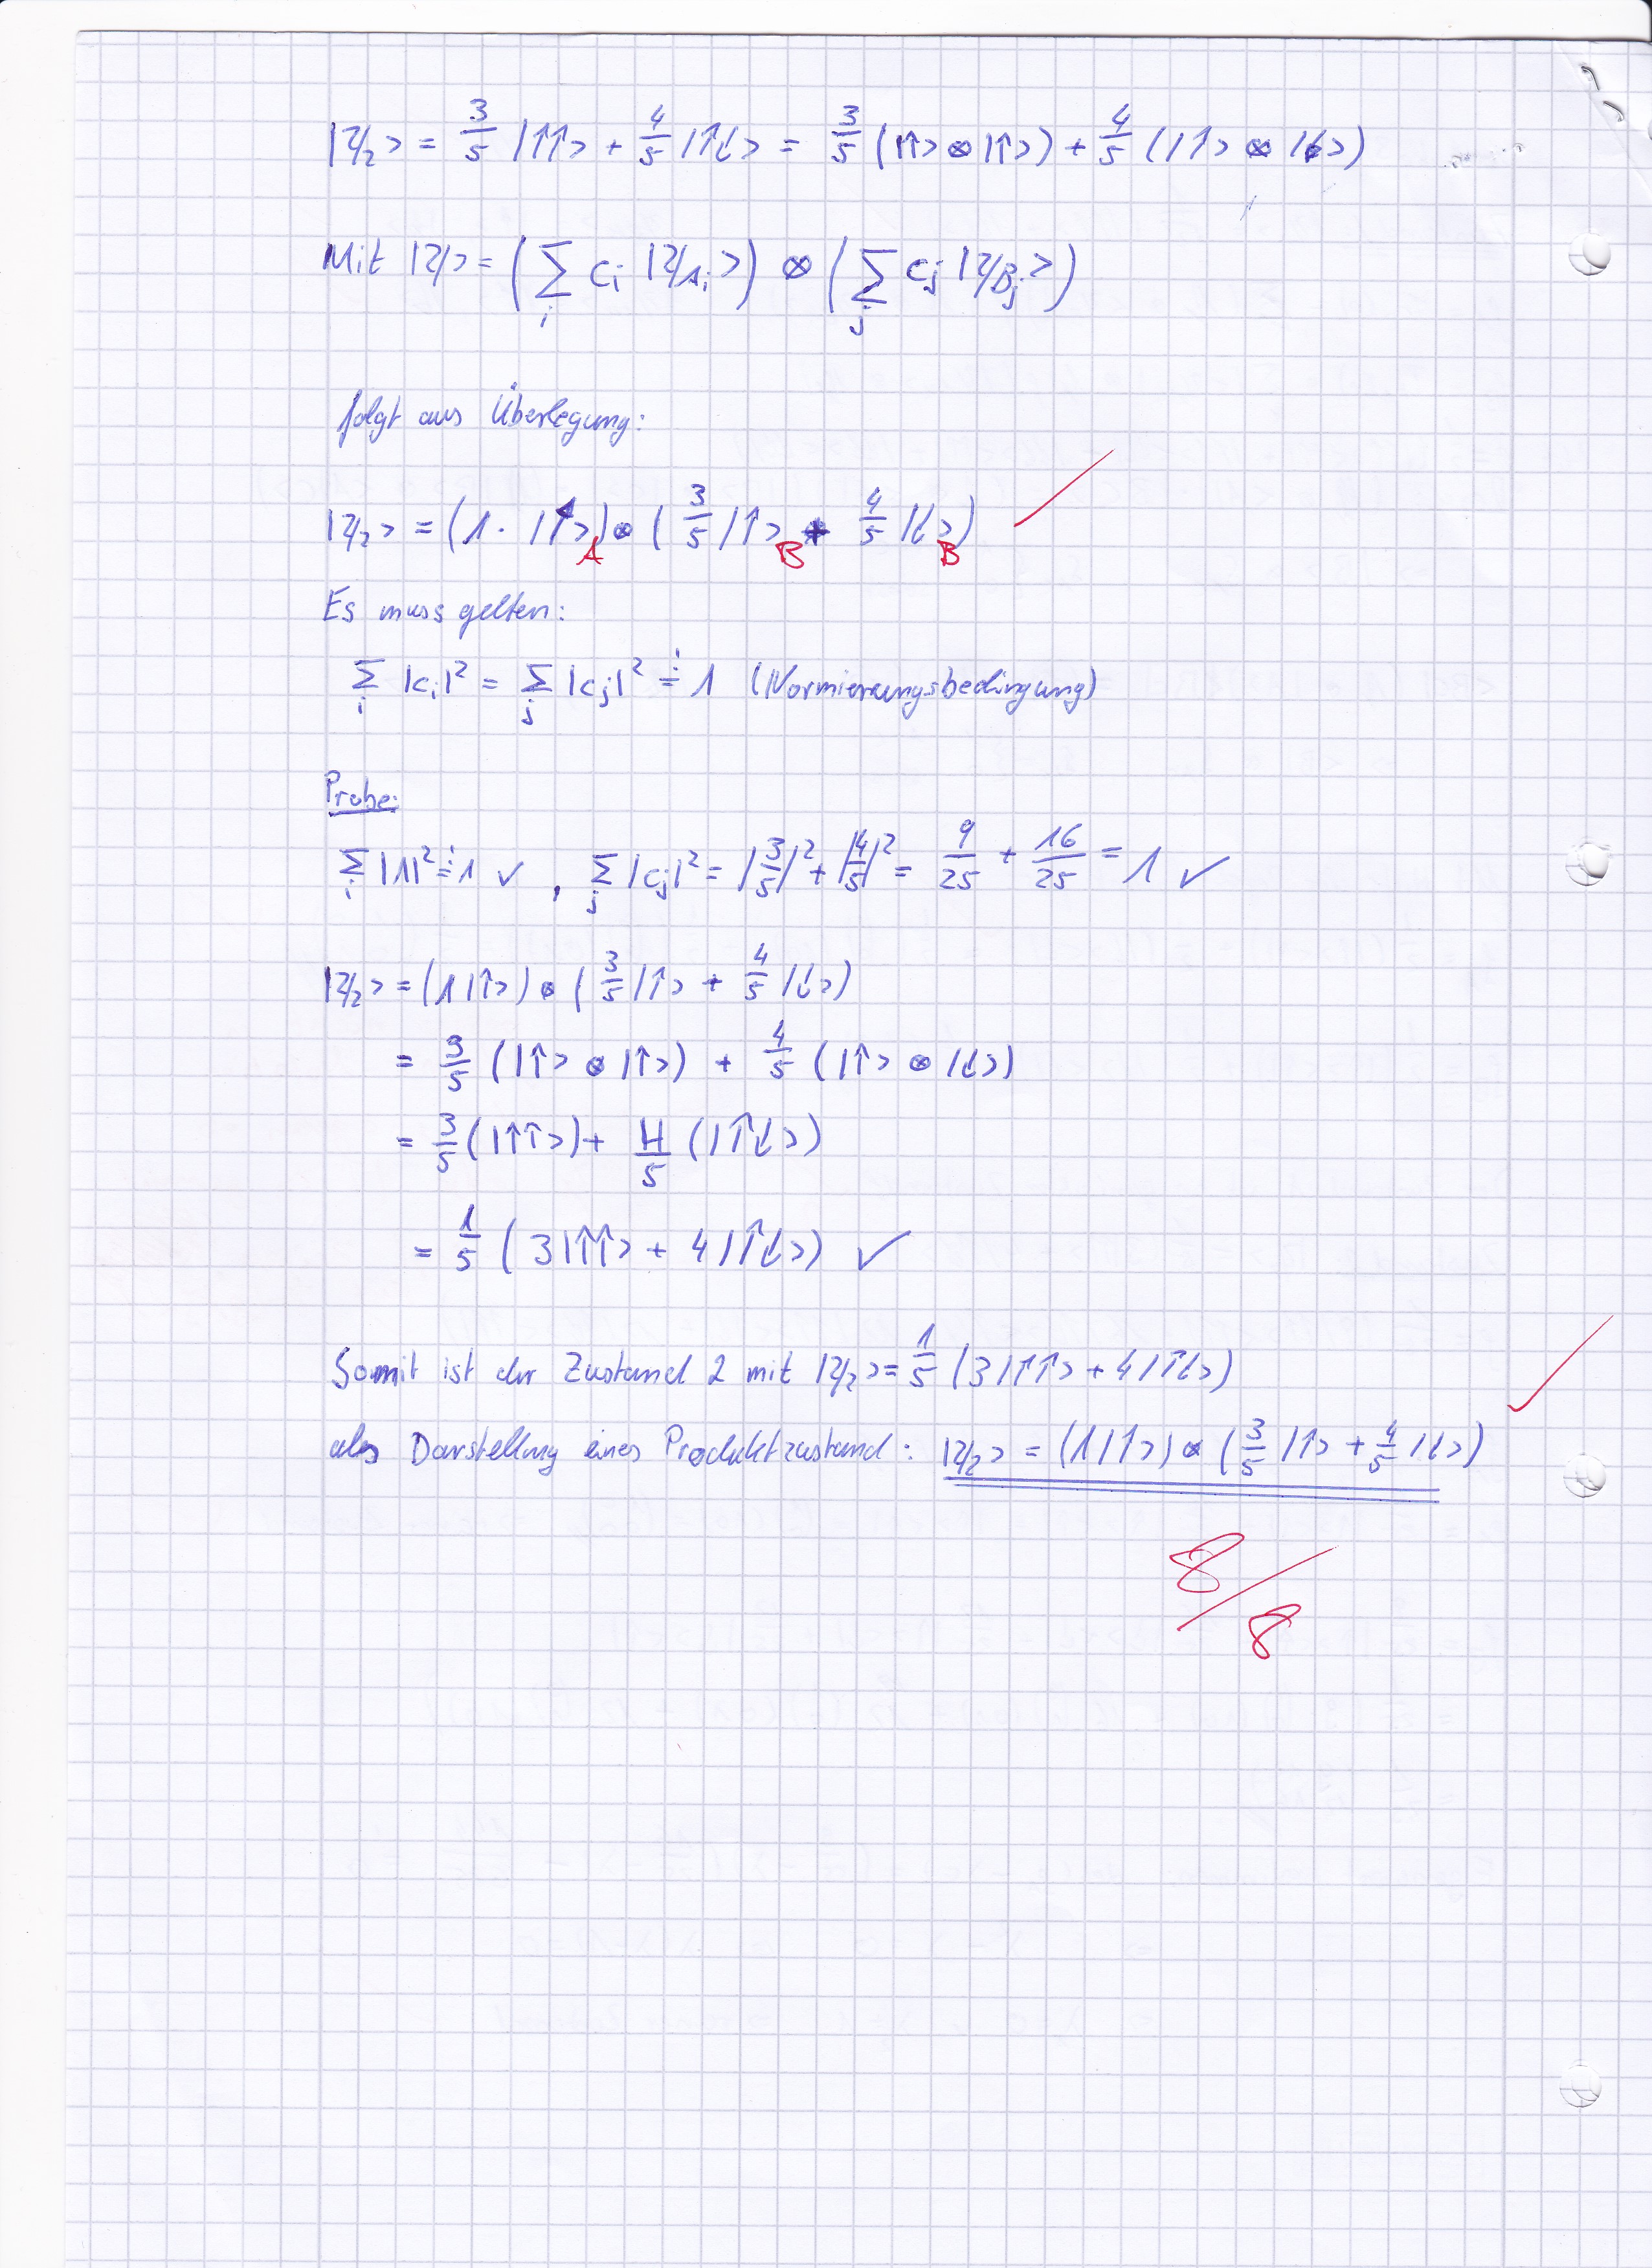 |ψ₂> = 3/5 |↑↑> + 4/5 |↑↓> = 3/5 (|↑> ⊗ |↑>) + 4/5 (|↑> ⊗ |↓>)
Mit |ψ> = (∑_i c_i |ψ_{A_i}>) ⊗ (∑_j c_j |ψ_{B_j}>)
folgt aus Überlegung:
|ψ₂> = (1 · |↑>_A) ⊗ (3/5 |↑>_B + 4/5 |↓>_B)
Es muss gelten:
∑_i |c_i|² = ∑_j |c_j|² =! 1 (Normierungsbedingung)
Probe:
∑_i |1|² =! 1 ✓ , ∑_j |c_j|² = |3/5|² + |4/5|² = 9/25 + 16/25 = 1 ✓
|ψ₂> = (1 |↑>) ⊗ (3/5 |↑> + 4/5 |↓>)
= 3/5 (|↑> ⊗ |↑>) + 4/5 (|↑> ⊗ |↓>)
= 3/5 (|↑↑>) + 4/5 (|↑↓>)
= 1/5 (3 |↑↑> + 4 |↑↓>) ✓
Somit ist der Zustand 2 mit |ψ₂> = 1/5 (3 |↑↑> + 4 |↑↓>)
als Darstellung eines Produktzustand: |ψ₂> = (1 |↑>) ⊗ (3/5 |↑> + 4/5 |↓>)
8/8